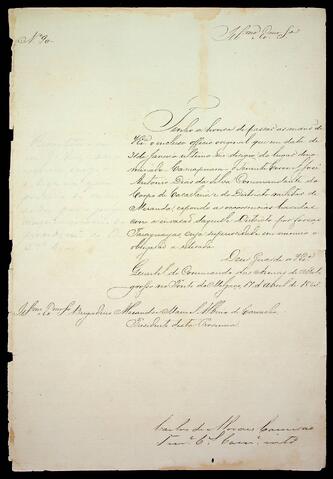 Nº 90
Illmo Exmo Snr
Tenho a honra de passar as mãos de
VExa o incluso officio original que em data de
31 de Janeiro ultimo me dirigio do lugar deno
minado Camapuam o Tenente Coronel José
Antonio Dias da Silva Commandante do
Corpo de Cavallaria e do Districto militar de
Miranda, expondo as occorrencias havidas
com a invasão daquelle Districto por forças
Paraguayas, cuja superioridade em numero o
obrigarão a retirada.
Deus Guarde a VExa
Quartel do Commando das Armas de Matto
grosso no Ponto do Melgaço, 17 de Abril de 1865
Illmo Exmo Snr Brigadeiro Alexandre Manoel Albino de Carvalho
Presidente desta Provincia
Carlos de Moraes Camisão
Tenᵉ Cᵉˡ Comᵗᵉ